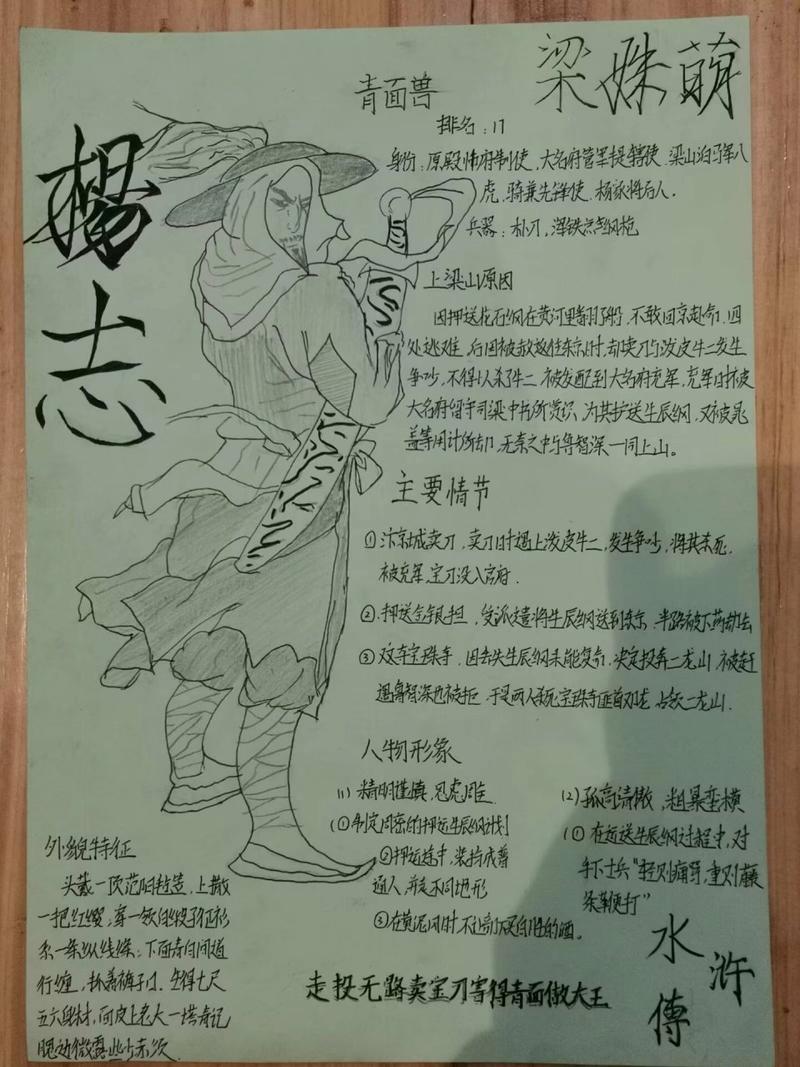 梁姝萌
青面兽
杨志
排名：17
身份：原殿帅府制使，大名府管军提辖使，梁山泊马军八
虎骑兼先锋使，杨家将后人．
兵器：朴刀，浑铁点钢枪
上梁山原因
因押送花石纲在黄河里翻了船，不敢回京赴命，四
处逃难，后因被赦 往东京时，却卖刀与泼皮牛二发生
争吵，不得以杀牛二 被发配到大名府充军，充军时被
大名府留守司梁中书所赏识，为其护送生辰纲，又被晁
盖等用计所劫，无奈之中与鲁智深一同上山。
主要情节
①汴京城卖刀，卖刀时遇上泼皮牛二，发生争吵，将其杀死．
被充军，宝刀没入官府．
②．押送金银担，受派遣将生辰纲送到东京，半路被下药劫去
③ 宝珠寺，因丢失生辰纲未能复命，决定投奔二龙山，被赶
遇鲁智深也被拒，于是两人杀死宝珠寺 首邓龙，占领二龙山．
人物形象
(1)精明谨慎，
(①制定周密的押运生辰纲计划
②押运途中，装扮成普
通人，并走不同地形
③在黄泥冈时，不让 白胜的酒。
(2)孤高清傲，粗暴蛮横
(①在运送生辰纲过程中，对
手下士兵“轻则痛骂，重则藤
条鞭打”
外貌特征
头戴一顶范阳毡笠，上撒
一把红缨，穿一领白缎子征衫
系一条纵线绦，下面青白间道
行缠，抓着裤子口．生得七尺
五六身材，面皮上老大一搭青记
腮边微露些少赤须．
走投无路卖宝刀害得青面做大王
水浒傳